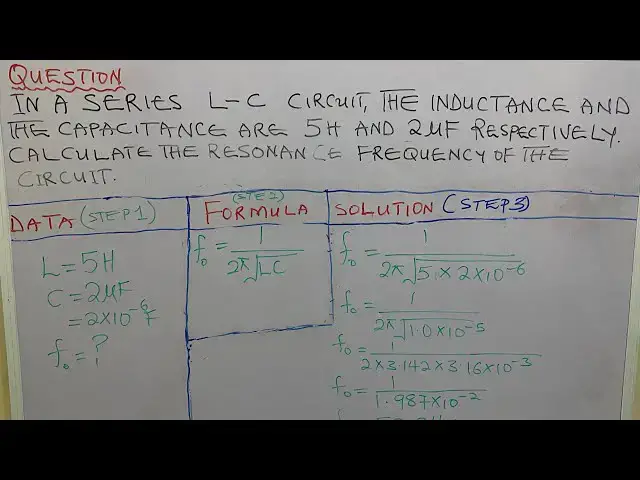 QUESTION
IN A SERIES L-C CIRCUIT, THE INDUCTANCE AND
THE CAPACITANCE ARE 5H AND 2μF RESPECTIVELY.
CALCULATE THE RESONANCE FREQUENCY OF THE
CIRCUIT.
DATA (STEP 1)
L = 5H
C = 2μF
= 2×10⁻⁶F
f₀ = ?
(STE2)
FORMULA
f₀ = 1 / 2π√LC
SOLUTION (STEP 3)
f₀ = 1 / 2π√5 × 2×10⁻⁶
f₀ = 1 / 2π√1.0×10⁻⁵
f₀ = 1 / 2×3.142×3.16×10⁻³
f₀ = 1 / 1.987×10⁻²